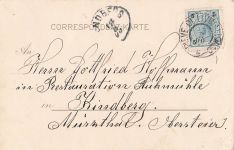 CORRESPONDENZ-KARTE
An
Herrn Gottfried Hoffmann
in Restauration
in Kindberg.
Mürzthal. Obersteier.